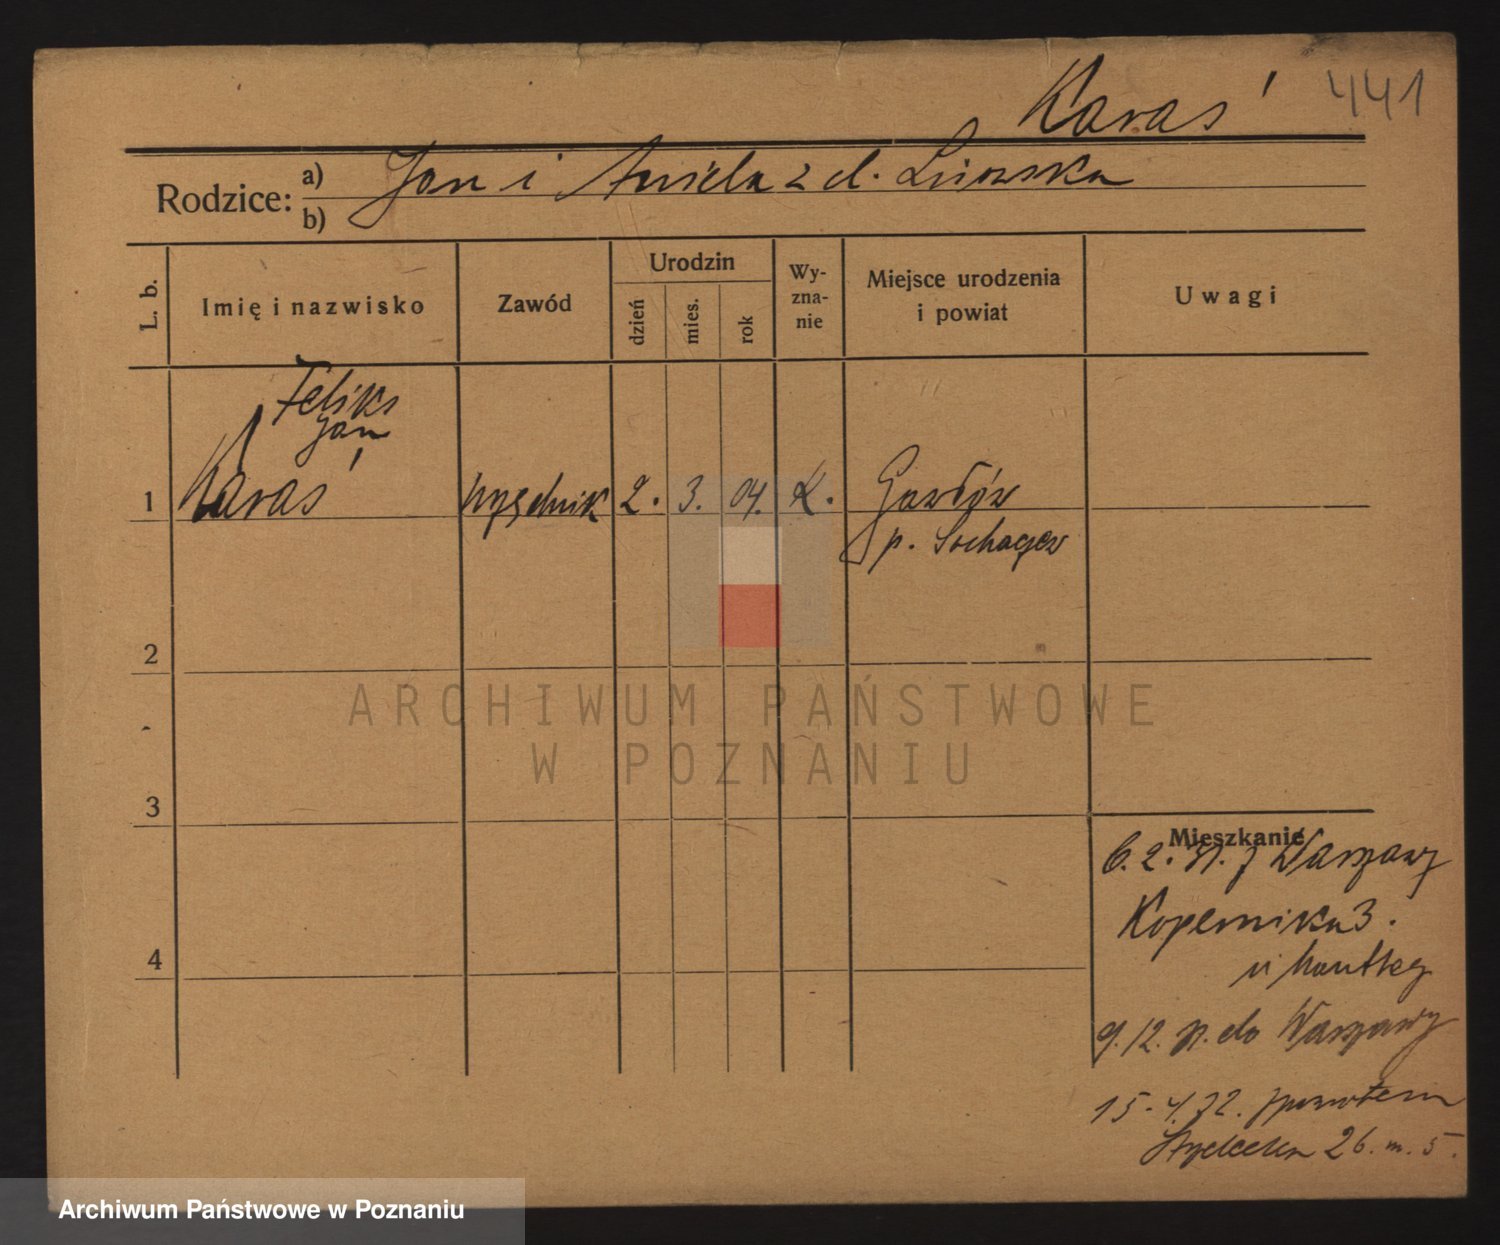 Karaś
441
Rodzice: a) Jan i Aniela z d.
b)
L. b.
Imię i nazwisko
Zawód
Urodzin
dzień
mies.
rok
Wy-
zna-
nie
Miejsce urodzenia
i powiat
Uwagi
Feliks
Jan
1 Karaś urzędnik 2. 3. 04.
p. Sochaczew
2
3
4
Mieszkanie
6. 2. 31. z Warszawy
Kopernika 3.
u
9.12. 31. do Warszawy
15. 4. 32. z powrotem
26. m. 5.
ARCHIWUM PAŃSTWOWE
W POZNANIU
Archiwum Państwowe w Poznaniu